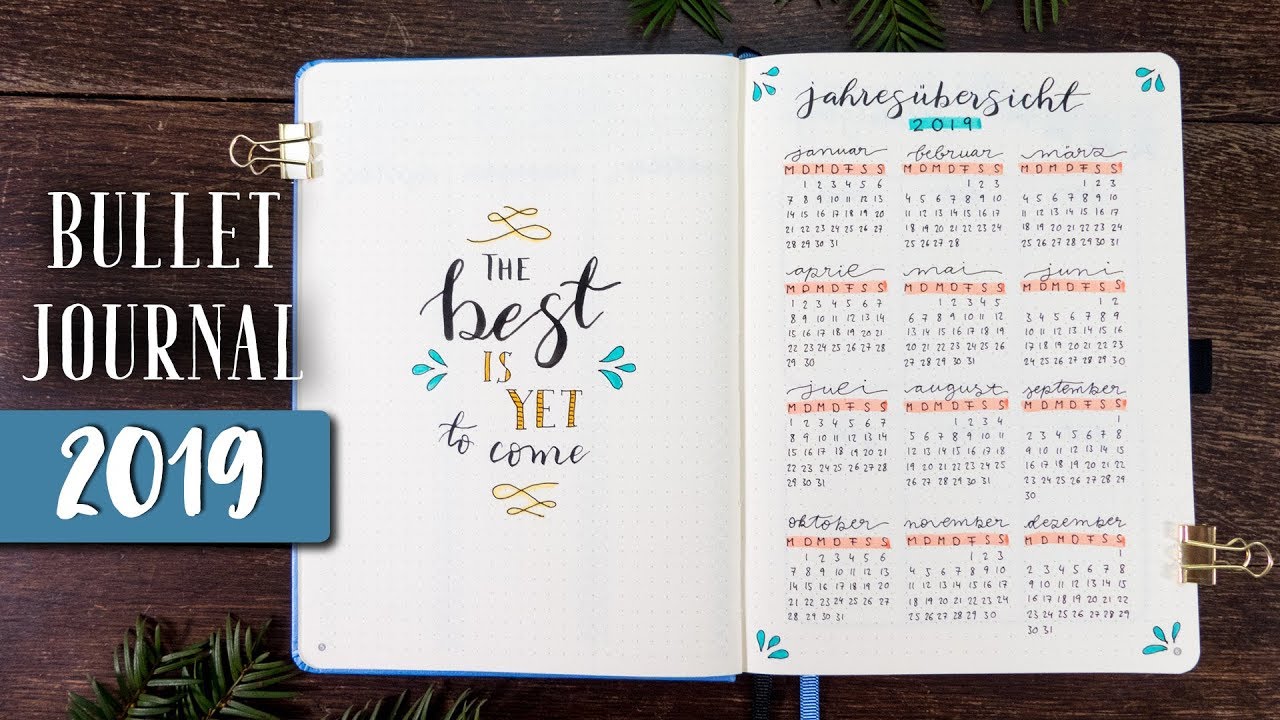 BULLET
JOURNAL
2019
THE
best
IS
YET
to come
jahresübersicht
2019
januar
M D M D F S S
1 2 3 4 5 6
7 8 9 10 11 12 13
14 15 16 17 18 19 20
21 22 23 24 25 26 27
28 29 30 31
februar
M D M D F S S
1 2 3
4 5 6 7 8 9 10
11 12 13 14 15 16 17
18 19 20 21 22 23 24
25 26 27 28
märz
M D M D F S S
1 2 3
4 5 6 7 8 9 10
11 12 13 14 15 16 17
18 19 20 21 22 23 24
25 26 27 28 29 30 31
april
M D M D F S S
1 2 3 4 5 6 7
8 9 10 11 12 13 14
15 16 17 18 19 20 21
22 23 24 25 26 27 28
29 30
mai
M D M D F S S
1 2 3 4 5
6 7 8 9 10 11 12
13 14 15 16 17 18 19
20 21 22 23 24 25 26
27 28 29 30 31
juni
M D M D F S S
1 2
3 4 5 6 7 8 9
10 11 12 13 14 15 16
17 18 19 20 21 22 23
24 25 26 27 28 29 30
juli
M D M D F S S
1 2 3 4 5 6 7
8 9 10 11 12 13 14
15 16 17 18 19 20 21
22 23 24 25 26 27 28
29 30 31
august
M D M D F S S
1 2 3 4
5 6 7 8 9 10 11
12 13 14 15 16 17 18
19 20 21 22 23 24 25
26 27 28 29 30 31
september
M D M D F S S
1
2 3 4 5 6 7 8
9 10 11 12 13 14 15
16 17 18 19 20 21 22
23 24 25 26 27 28 29
30
oktober
M D M D F S S
1 2 3 4 5 6
7 8 9 10 11 12 13
14 15 16 17 18 19 20
21 22 23 24 25 26 27
28 29 30 31
november
M D M D F S S
1 2 3
4 5 6 7 8 9 10
11 12 13 14 15 16 17
18 19 20 21 22 23 24
25 26 27 28 29 30
dezember
M D M D F S S
1
2 3 4 5 6 7 8
9 10 11 12 13 14 15
16 17 18 19 20 21 22
23 24 25 26 27 28 29
30 31